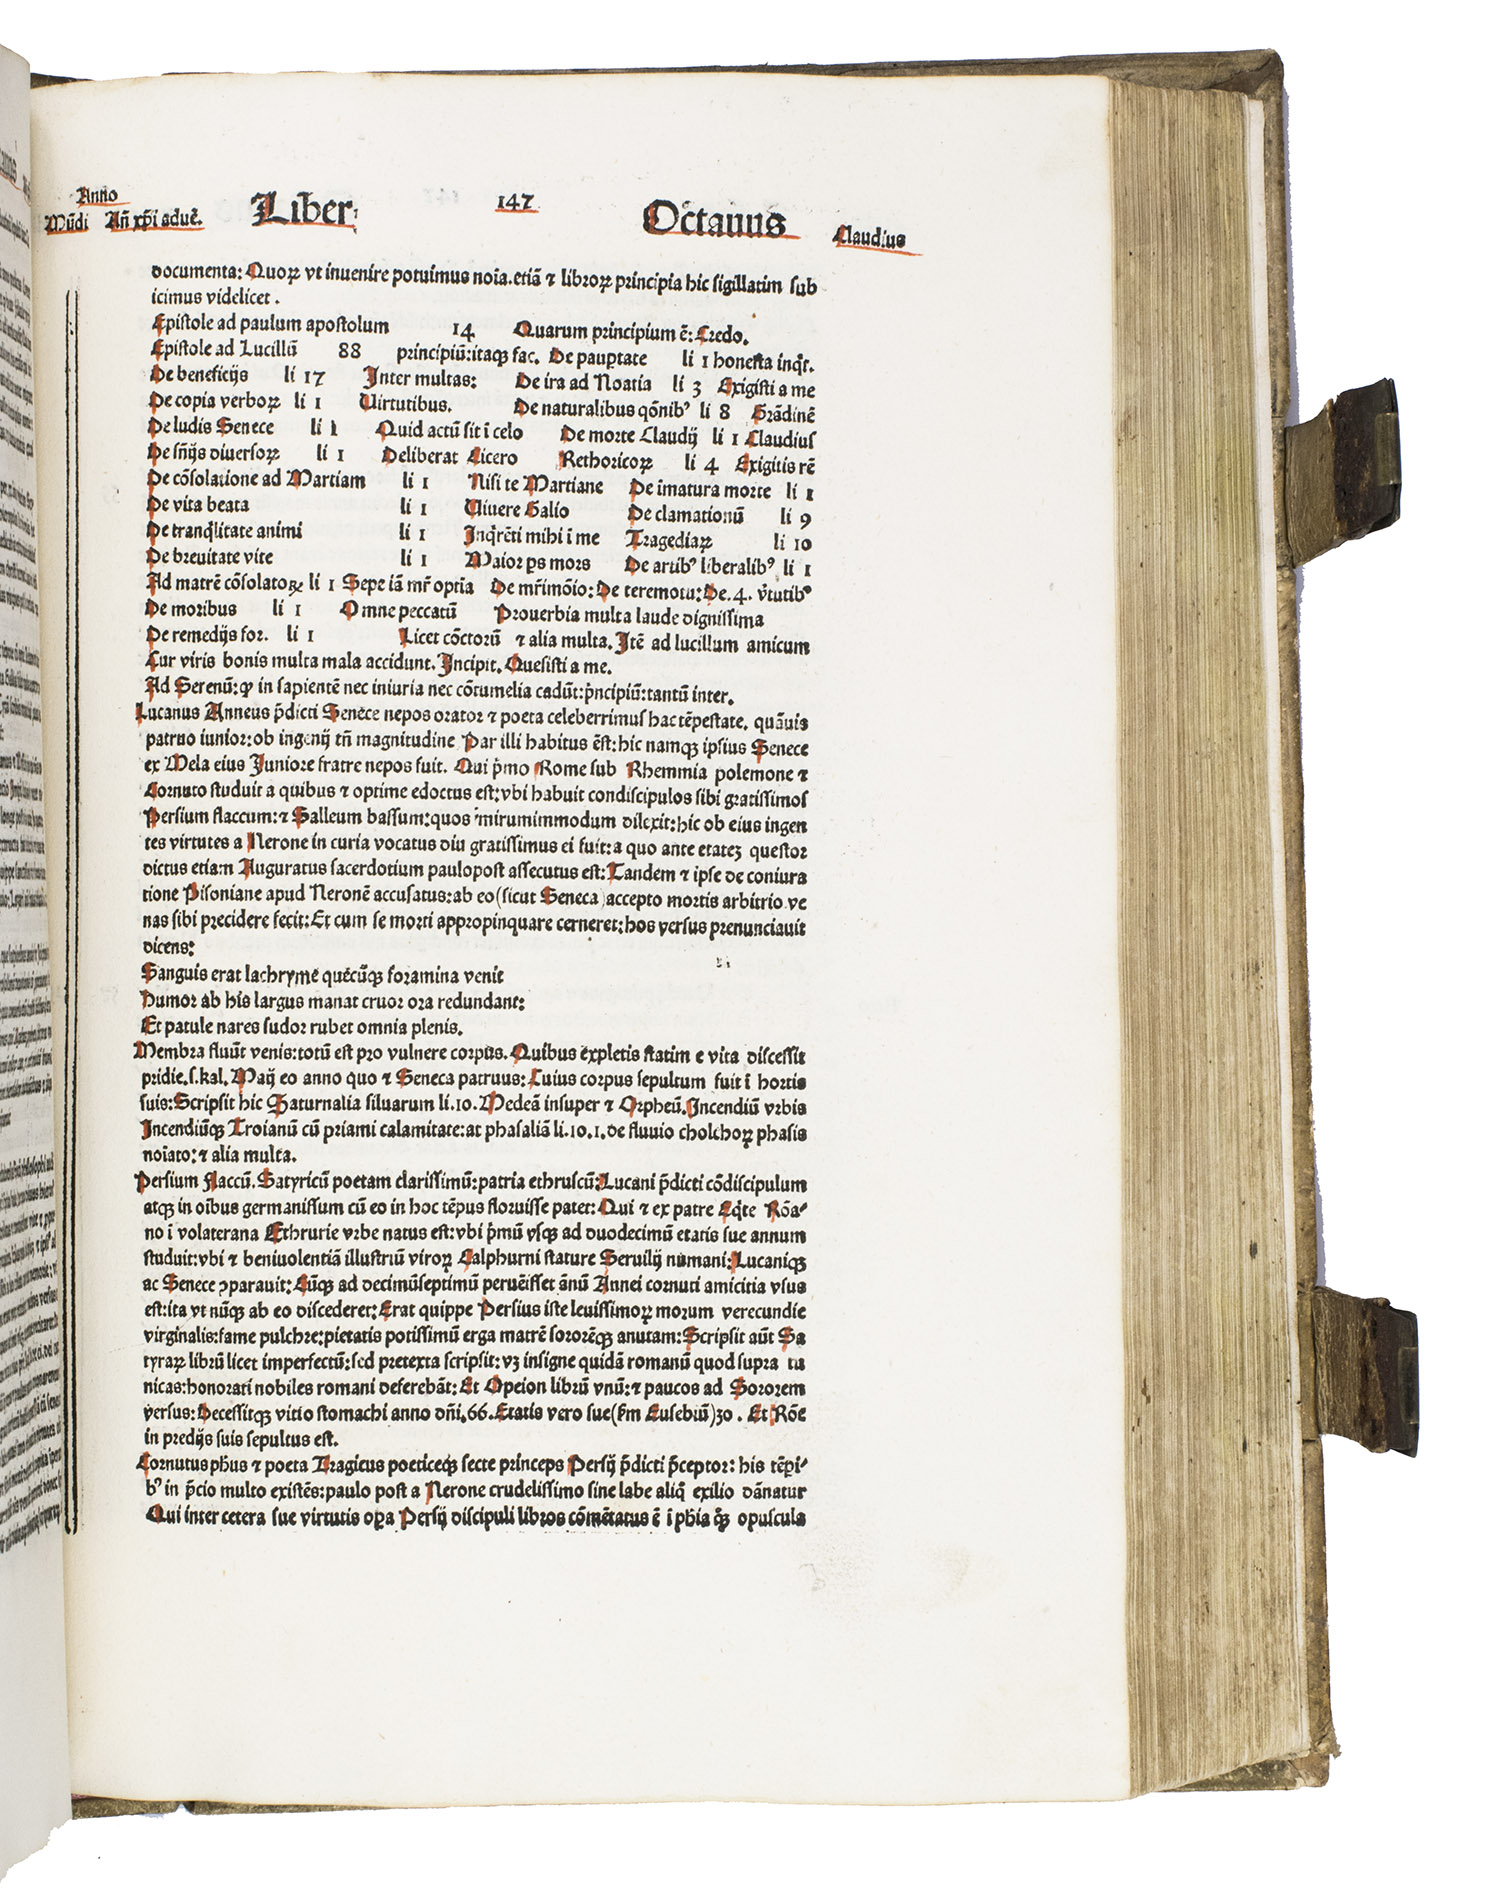 Anno
Mūdi Añ xp̄i aduē. Liber: 147 Octauus Claudius
documenta: Quoꝝ vt inuenire potuimus noīa. etiā ⁊ libroꝝ principia hic sigillatim sub
icimus videlicet.
Epistole ad paulum apostolum 14 Quarum principium ē: Credo.
Epistole ad Lucillū 88 principiū: itaqꝫ fac. De paup̱tate li 1 honesta inq̇t.
De beneficijs li 17 Inter multas: De ira ad Noatia li 3 Exigisti a me
De copia verboꝝ li 1 Uirtutibus. De naturalibus qōnibꝰ li 8 Grādinē
De ludis Senece li 1 Quid actū sit ī celo De morte Claudij li 1 Claudius
De sñijs diuersoꝝ li 1 Deliberat Cicero Rethoricoꝝ li 4 Exigitis rē
De cōsolatione ad Martiam li 1 Nisi te Martiane De īmatura morte li 1
De vita beata li 1 Uiuere Galio De clamationū li 9
De tranq̇litate animi li 1 Inq̇rēti mihi ī me Tragediaꝝ li 10
De breuitate vite li 1 Maior ps mors De artibꝰ liberalibꝰ li 1
Ad matrē cōsolatoꝝ li 1 Sepe iā mr̄ optīa De mr̄imōio: De teremotu: De. 4. v̄tutibꝰ
De moribus li 1 Omne peccatū Prouerbia multa laude dignissima
De remedijs for. li 1 Licet cōctorū ⁊ alia multa. Itē ad lucillum amicum
Cur viris bonis multa mala accidunt. Incipit. Quesisti a me.
Ad Serenū: ꝙ in sapientē nec iniuria nec cōtumelia cadūt: p̄ncipiū: tantū inter.
Lucanus Anneus p̄dicti Senece nepos orator ⁊ poeta celeberrimus hac tēpestate. quāuis
patruo iunior: ob ingenij tñ magnitudine Par illi habitus ēst: hic namqꝫ ipsius Senece
ex Mela eius Juniore fratre nepos fuit. Qui p̄mo Rome sub Rhemmia polemone ⁊
Cornuto studuit a quibus ⁊ optime edoctus est: vbi habuit condiscipulos sibi gratissimos
Persium flaccum: ⁊ Salleum bassum: quos mirumimmodum dilexit: hic ob eius ingen
tes virtutes a Nerone in curia vocatus diu gratissimus ei fuit: a quo ante etateꝫ questor
dictus etiam Auguratus sacerdotium paulopost assecutus est: Tandem ⁊ ipse de coniura
tione Pisoniane apud Neronē accusatus: ab eo (sicut Seneca) accepto mortis arbitrio ve
nas sibi precidere fecit: Et cum se morti appropinquare cerneret: hos versus prenunciauit
dicens:
Sanguis erat lachryme quecūqꝫ foramina venit
Humor ab his largus manat cruor ora redundant:
Et patule nares sudor rubet omnia plenis.
Membra fluūt venis: totū est pro vulnere corpus. Quibus expletis statim e vita discessit
pridie. s. kal. Maij eo anno quo ⁊ Seneca patruus: Cuius corpus sepultum fuit ī hortis
suis: Scripsit hic Saturnalia siluarum li. 10. Medeā insuper ⁊ Orpheū. Incendiū vrbis
Incendiūqꝫ Troianū cū priami calamitate: at phasaliā li. 10. 1. de fluuio cholchoꝝ phasis
noīato: ⁊ alia multa.
Persium flaccū. Satyricū poetam clarissimū: patria ethruscū: Lucani p̄dicti cōdiscipulum
atqꝫ in oībus germanissum cū eo in hoc tēpus floruisse patet: Qui ⁊ ex patre Eq̇te Rōa-
no ī volaterana Ethrurie vrbe natus est: vbi p̄mū vsqꝫ ad duodecimū etatis sue annum
studuit: vbi ⁊ beniuolentiā illustriū viroꝝ Calphurni stature Seruilij numani: Lucaniqꝫ
ac Senece ꝯparauit: Cūqꝫ ad decimūseptimū peruēisset ānū Annei cornuti amicitia vsus
est: ita vt nūqꝫ ab eo discederet: Erat quippe Persius iste leuissimoꝝ morum verecundie
virginalis: fame pulchre: pietatis potissimū erga matrē sororēqꝫ anutam: Scripsit aūt Sa
tyraꝝ librū licet imperfectū: sed pretexta scripsit: vꝫ insigne quidā romanū quod supra tu
nicas: honorati nobiles romani deferebāt: Et Opeion librū vnū: ⁊ paucos ad Sororem
versus: Decessitqꝫ vitio stomachi anno dñi. 66. Etatis vero sue (s̄m Eusebiū) 30. Et Rōe
in predijs suis sepultus est.
Cornutus ph̄us ⁊ poeta Tragicus poeticeqꝫ secte princeps Persij p̄dicti p̄ceptor: his tēpi-
bꝰ in p̄cio multo existēs: paulo post a Nerone crudelissimo sine labe aliq̄ exilio dānatur
Qui inter cetera sue virtutis oꝑa Persij discipuli libros cōmētatus ē ī ph̄ia q̄ꝫ opuscula